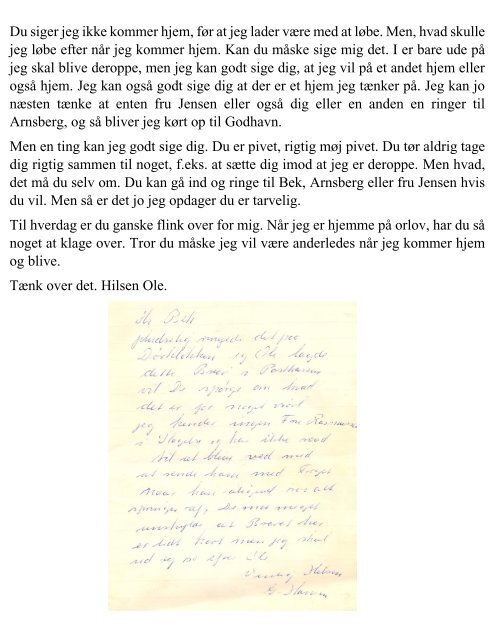 Du siger jeg ikke kommer hjem, før at jeg lader være med at løbe. Men, hvad skulle
jeg løbe efter når jeg kommer hjem. Kan du måske sige mig det. I er bare ude på
jeg skal blive deroppe, men jeg kan godt sige dig, at jeg vil på et andet hjem eller
også hjem. Jeg kan også godt sige dig at der er et hjem jeg tænker på. Jeg kan jo
næsten tænke at enten fru Jensen eller også dig eller en anden en ringer til
Arnsberg, og så bliver jeg kørt op til Godhavn.
Men en ting kan jeg godt sige dig. Du er pivet, rigtig møj pivet. Du tør aldrig tage
dig rigtig sammen til noget, f.eks. at sætte dig imod at jeg er deroppe. Men hvad,
det må du selv om. Du kan gå ind og ringe til Bek, Arnsberg eller fru Jensen hvis
du vil. Men så er det jo jeg opdager du er tarvelig.
Til hverdag er du ganske flink over for mig. Når jeg er hjemme på orlov, har du så
noget at klage over. Tror du måske jeg vil være anderledes når jeg kommer hjem
og blive.
Tænk over det. Hilsen Ole.
Hr Bek
pludselig ringede det paa
Dørklokken og Ole lagde
dette Brev i Postkassen
vil De spørge om hvad
det er for noget
jeg kender ingen Fru Rasmussen
i Slagelse og har ikke
til at blive ved med
at sende ham med Toget
naar han alligevel
springer af, De maa meget
undskylde at Brevet her
er lidt kort men jeg skal
ud og se efter Ole
Venlig Hilsen
G Hansen